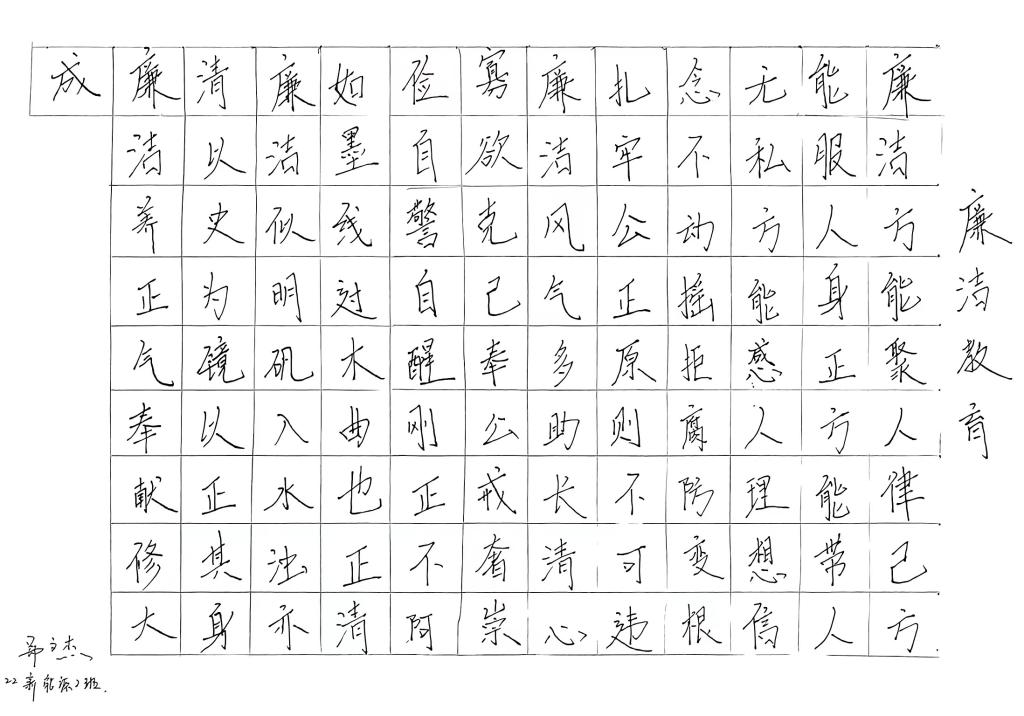 廉洁教育
廉洁方能聚人律己方
能服人身正方能带人
无私方能感人理想信
念不动摇拒腐防变根
扎牢公正原则不可违
廉洁风气多助长清心
寡欲克己奉公戒奢崇
俭自警自醒刚正不阿
如墨线对木曲也正清
廉洁似明矾入水浊亦
清以史为镜以正其身
廉洁养正气奉献修大
成
22新能源2班.